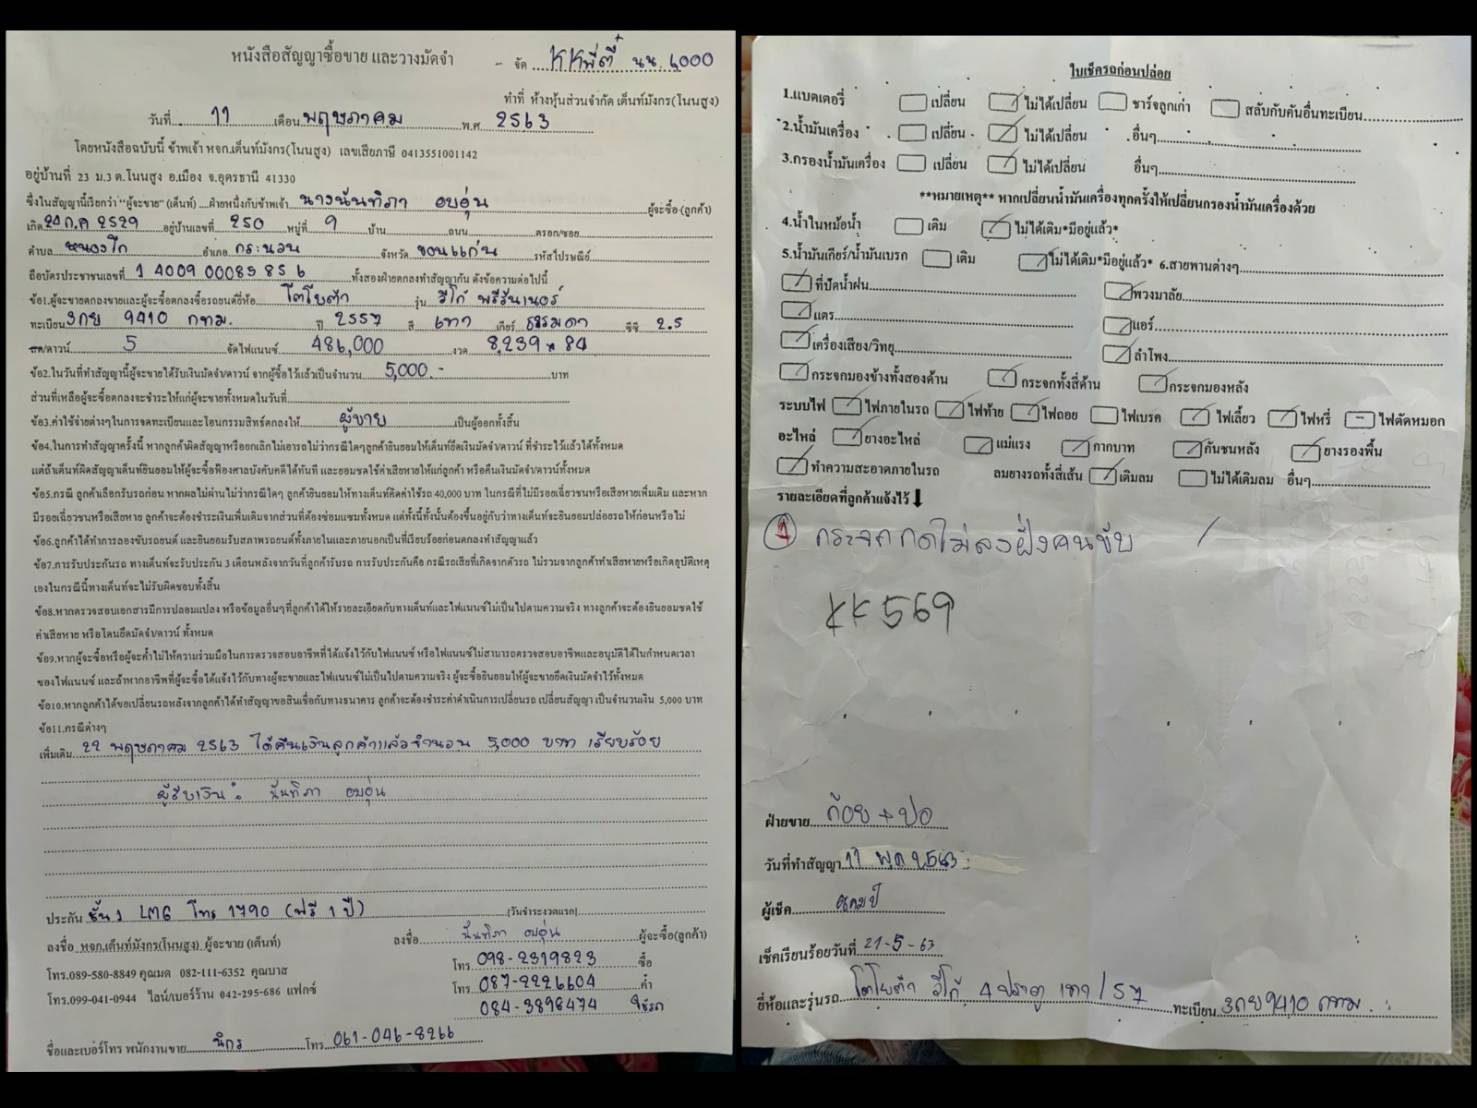 หนังสือสัญญาซื้อขาย และวางมัดจำ
- จัด KKพี่ตี๋ นน 6,000
ทำที่ ห้างหุ้นส่วนจำกัด เต็นท์มังกร(โนนสูง)
วันที่ 11 เดือน พฤษภาคม พ.ศ 2563
โดยหนังสือฉบับนี้ ข้าพเจ้า หจก.เต็นท์มังกร(โนนสูง) เลขเสียภาษี 0413551001142
อยู่บ้านที่ 23 ม.3 ต.โนนสูง อ.เมือง จ.อุดรธานี 41330
ซึ่งในสัญญานี้เรียกว่า "ผู้จะขาย" (เต็นท์) ฝ่ายหนึ่งกับข้าพเจ้า นางนันทิภา อบอุ่น ผู้จะซื้อ (ลูกค้า)
เกิด 20 ก.ค 2529 อยู่บ้านเลขที่ 250 หมู่ที่ 9 บ้าน ถนน ตรอก/ซอย
ตำบล หนองโก อำเภอ กระนวน จังหวัด ขอนแก่น รหัสไปรษณีย์
ถือบัตรประชาชนเลขที่ 1 4009 00085 85 6 ทั้งสองฝ่ายตกลงทำสัญญากัน ดังข้อความต่อไปนี้
ข้อ1.ผู้จะขายตกลงขายและผู้จะซื้อตกลงซื้อรถยนต์ยี่ห้อ โตโยต้า รุ่น วีโก้ พรีรันเนอร์
ทะเบียน 3กย 9410 กทม. ปี 2557 สี เทา เกียร์ ธรรมดา ซีซี 2.5
สด/ดาวน์ 5 จัดไฟแนนซ์ 486,000 งวด 8,239 x 84
ข้อ2.ในวันที่ทำสัญญานี้ผู้จะขายได้รับเงินมัดจำ/ดาวน์ จากผู้ซื้อไว้แล้วเป็นจำนวน 5,000.- บาท
ส่วนที่เหลือผู้จะซื้อตกลงจะชำระให้แก่ผู้จะขายทั้งหมดในวันที่
ข้อ3.ค่าใช้จ่ายต่างๆในการจดทะเบียนและโอนกรรมสิทธ์ตกลงให้ ผู้ขาย เป็นผู้ออกทั้งสิ้น
ข้อ4.ในการทำสัญญาครั้งนี้ หากลูกค้าผิดสัญญาหรือยกเลิกไม่เอารถไม่ว่ากรณีใดๆลูกค้ายินยอมให้เต็นท์ยึดเงินมัดจำ/ดาวน์ ที่ชำระไว้แล้วได้ทั้งหมด
แต่ถ้าเต็นท์ผิดสัญญาเต็นท์ยินยอมให้ผู้จะซื้อฟ้องศาลบังคับคดีได้ทันที และยอมชดใช้ค่าเสียหายให้แก่ลูกค้า หรือคืนเงินมัดจำ/ดาวน์ทั้งหมด
ข้อ5.กรณี ลูกค้าเลือกรับรถก่อน หากผลไม่ผ่านไม่ว่ากรณีใดๆ ลูกค้ายินยอมให้ทางเต็นท์คิดค่าใช้รถ 40,000 บาท ในกรณีที่ไม่มีรอยเฉี่ยวชนหรือเสียหายเพิ่มเติม และหาก
มีรอยเฉี่ยวชนหรือเสียหาย ลูกค้าจะต้องชำระเงินเพิ่มเติมจากส่วนที่ต้องซ่อมแซมทั้งหมด แต่ทั้งนี้ทั้งนั้นต้องขึ้นอยู่กับว่าทางเต็นท์จะยินยอมปล่อยรถให้ก่อนหรือไม่
ข้อ6.ลูกค้าได้ทำการลองขับรถยนต์ และยินยอมรับสภาพรถยนต์ทั้งภายในและภายนอกเป็นที่เรียบร้อยก่อนตกลงทำสัญญาแล้ว
ข้อ7.การรับประกันรถ ทางเต็นท์จะรับประกัน 3 เดือนหลังจากวันที่ลูกค้ารับรถ การรับประกันคือ กรณีรถเสียที่เกิดจากตัวรถ ไม่รวมจากลูกค้าทำเสียหายหรือเกิดอุบัติเหตุ
เองในกรณีนี้ทางเต็นท์จะไม่รับผิดชอบทั้งสิ้น
ข้อ8.หากตรวจสอบเอกสารมีการปลอมแปลง หรือข้อมูลอื่นๆที่ลูกค้าได้ให้รายละเอียดกับทางเต็นท์และไฟแนนซ์ไม่เป็นไปตามความจริง ทางลูกค้าจะต้องยินยอมชดใช้
ค่าเสียหาย หรือโดนยึดมัดจำ/ดาวน์ ทั้งหมด
ข้อ9.หากผู้จะซื้อหรือผู้จะค้ำไม่ให้ความร่วมมือในการตรวจสอบอาชีพที่ได้แจ้งไว้กับไฟแนนซ์ หรือไฟแนนซ์ไม่สามารถตรวจสอบอาชีพและอนุมัติได้ในกำหนดเวลา
ของไฟแนนซ์ และถ้าหากอาชีพที่ผู้จะซื้อได้แจ้งไว้กับทางผู้จะขายและไฟแนนซ์ไม่เป็นไปตามความจริง ผู้จะซื้อยินยอมให้ผู้จะขายยึดเงินมัดจำไว้ทั้งหมด
ข้อ10.หากลูกค้าได้ขอเปลี่ยนรถหลังจากลูกค้าได้ทำสัญญาขอสินเชื่อกับทางธนาคาร ลูกค้าจะต้องชำระค่าดำเนินการเปลี่ยนรถ เปลี่ยนสัญญา เป็นจำนวนเงิน 5,000 บาท
ข้อ11.กรณีต่างๆ
เพิ่มเติม 22 พฤษภาคม 2563 ได้คืนเงินลูกค้าแล้วจำนวน 5,000 บาท เรียบร้อย
ผู้รับเงิน : นันทิภา อบอุ่น
ประกัน ชั้น 1 LMG โทร 1790 (ฟรี 1 ปี) (วันชำระงวดแรก)
ลงชื่อ หจก.เต็นท์มังกร(โนนสูง) ผู้จะขาย (เต็นท์) ลงชื่อ นันทิภา อบอุ่น ผู้จะซื้อ(ลูกค้า)
โทร.089-580-8849 คุณมด 082-111-6352 คุณบาส โทร 098-2319823 ซื้อ
โทร.099-041-0944 ไลน์/เบอร์ร้าน 042-295-686 แฟกซ์ โทร 087-2226604 ค้ำ
084-3898474 ใช้รถ
ชื่อและเบอร์โทร พนักงานขาย นิกร โทร 061-046-8266
ใบเช็ครถก่อนปล่อย
1.แบตเตอรี่ เปลี่ยน ไม่ได้เปลี่ยน ชาร์จลูกเก่า สลับกับคันอื่นทะเบียน
2.น้ำมันเครื่อง เปลี่ยน ไม่ได้เปลี่ยน อื่นๆ
3.กรองน้ำมันเครื่อง เปลี่ยน ไม่ได้เปลี่ยน อื่นๆ
**หมายเหตุ** หากเปลี่ยนน้ำมันเครื่องทุกครั้งให้เปลี่ยนกรองน้ำมันเครื่องด้วย
4.น้ำในหม้อน้ำ เติม ไม่ได้เติม*มีอยู่แล้ว*
5.น้ำมันเกียร์/น้ำมันเบรก เติม ไม่ได้เติม*มีอยู่แล้ว* 6.สายพานต่างๆ
ที่ปัดน้ำฝน พวงมาลัย
แตร แอร์
เครื่องเสียง/วิทยุ ลำโพง
กระจกมองข้างทั้งสองด้าน กระจกทั้งสี่ด้าน กระจกมองหลัง
ระบบไฟ ไฟภายในรถ ไฟท้าย ไฟถอย ไฟเบรค ไฟเลี้ยว ไฟหรี่ ไฟตัดหมอก
อะไหล่ ยางอะไหล่ แม่แรง กากบาท กันชนหลัง ยางรองพื้น
ทำความสะอาดภายในรถ ลมยางรถทั้งสี่เส้น เติมลม ไม่ได้เติมลม อื่นๆ
รายละเอียดที่ลูกค้าแจ้งไว้
1 กระจกกดไม่ลงฝั่งคนขับ /
KK569
ฝ่ายขาย ก้อย + ปอ
วันที่ทำสัญญา 11 พ.ค 2563
ผู้เช็ค
เช็คเรียบร้อยวันที่ 21-5-63
ยี่ห้อและรุ่นรถ โตโยต้า วีโก้ 4 ประตู เทา / 57 ทะเบียน 3กย9410 กทม.